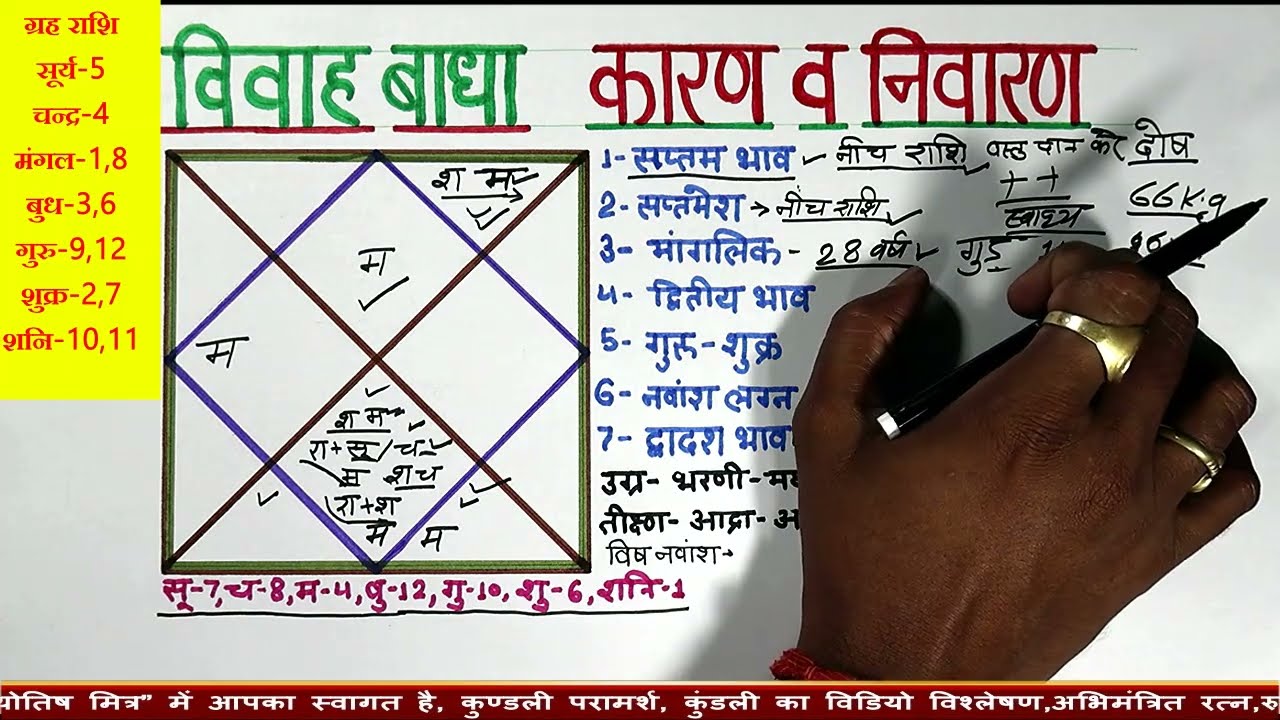 ग्रह राशि
सूर्य-5
चन्द्र-4
मंगल-1,8
बुध-3,6
गुरु-9,12
शुक्र-2,7
शनि-10,11
विवाह बाधा कारण व निवारण
1- सप्तम भाव नीच राशि दोष
2- सप्तमेश → नीच राशि ++ 66K.g
3- मांगलिक - 28 वर्ष गुड़
4- द्वितीय भाव
5- गुरु-शुक्र
6- नवांश लग्न
7- द्वादश भाव
उग्र- भरणी-
तीक्ष्ण- आद्रा-
विष नवांश-
श म
म
म
श म
रा+सू/च
म श च
रा+श
म म
सू-7,च-8,म-4,बु-12,गु-10,शु-6,शनि-1
में आपका स्वागत है, कुण्डली परामर्श, कुंडली का विडियो विश्लेषण,अभिमंत्रित रत्न,